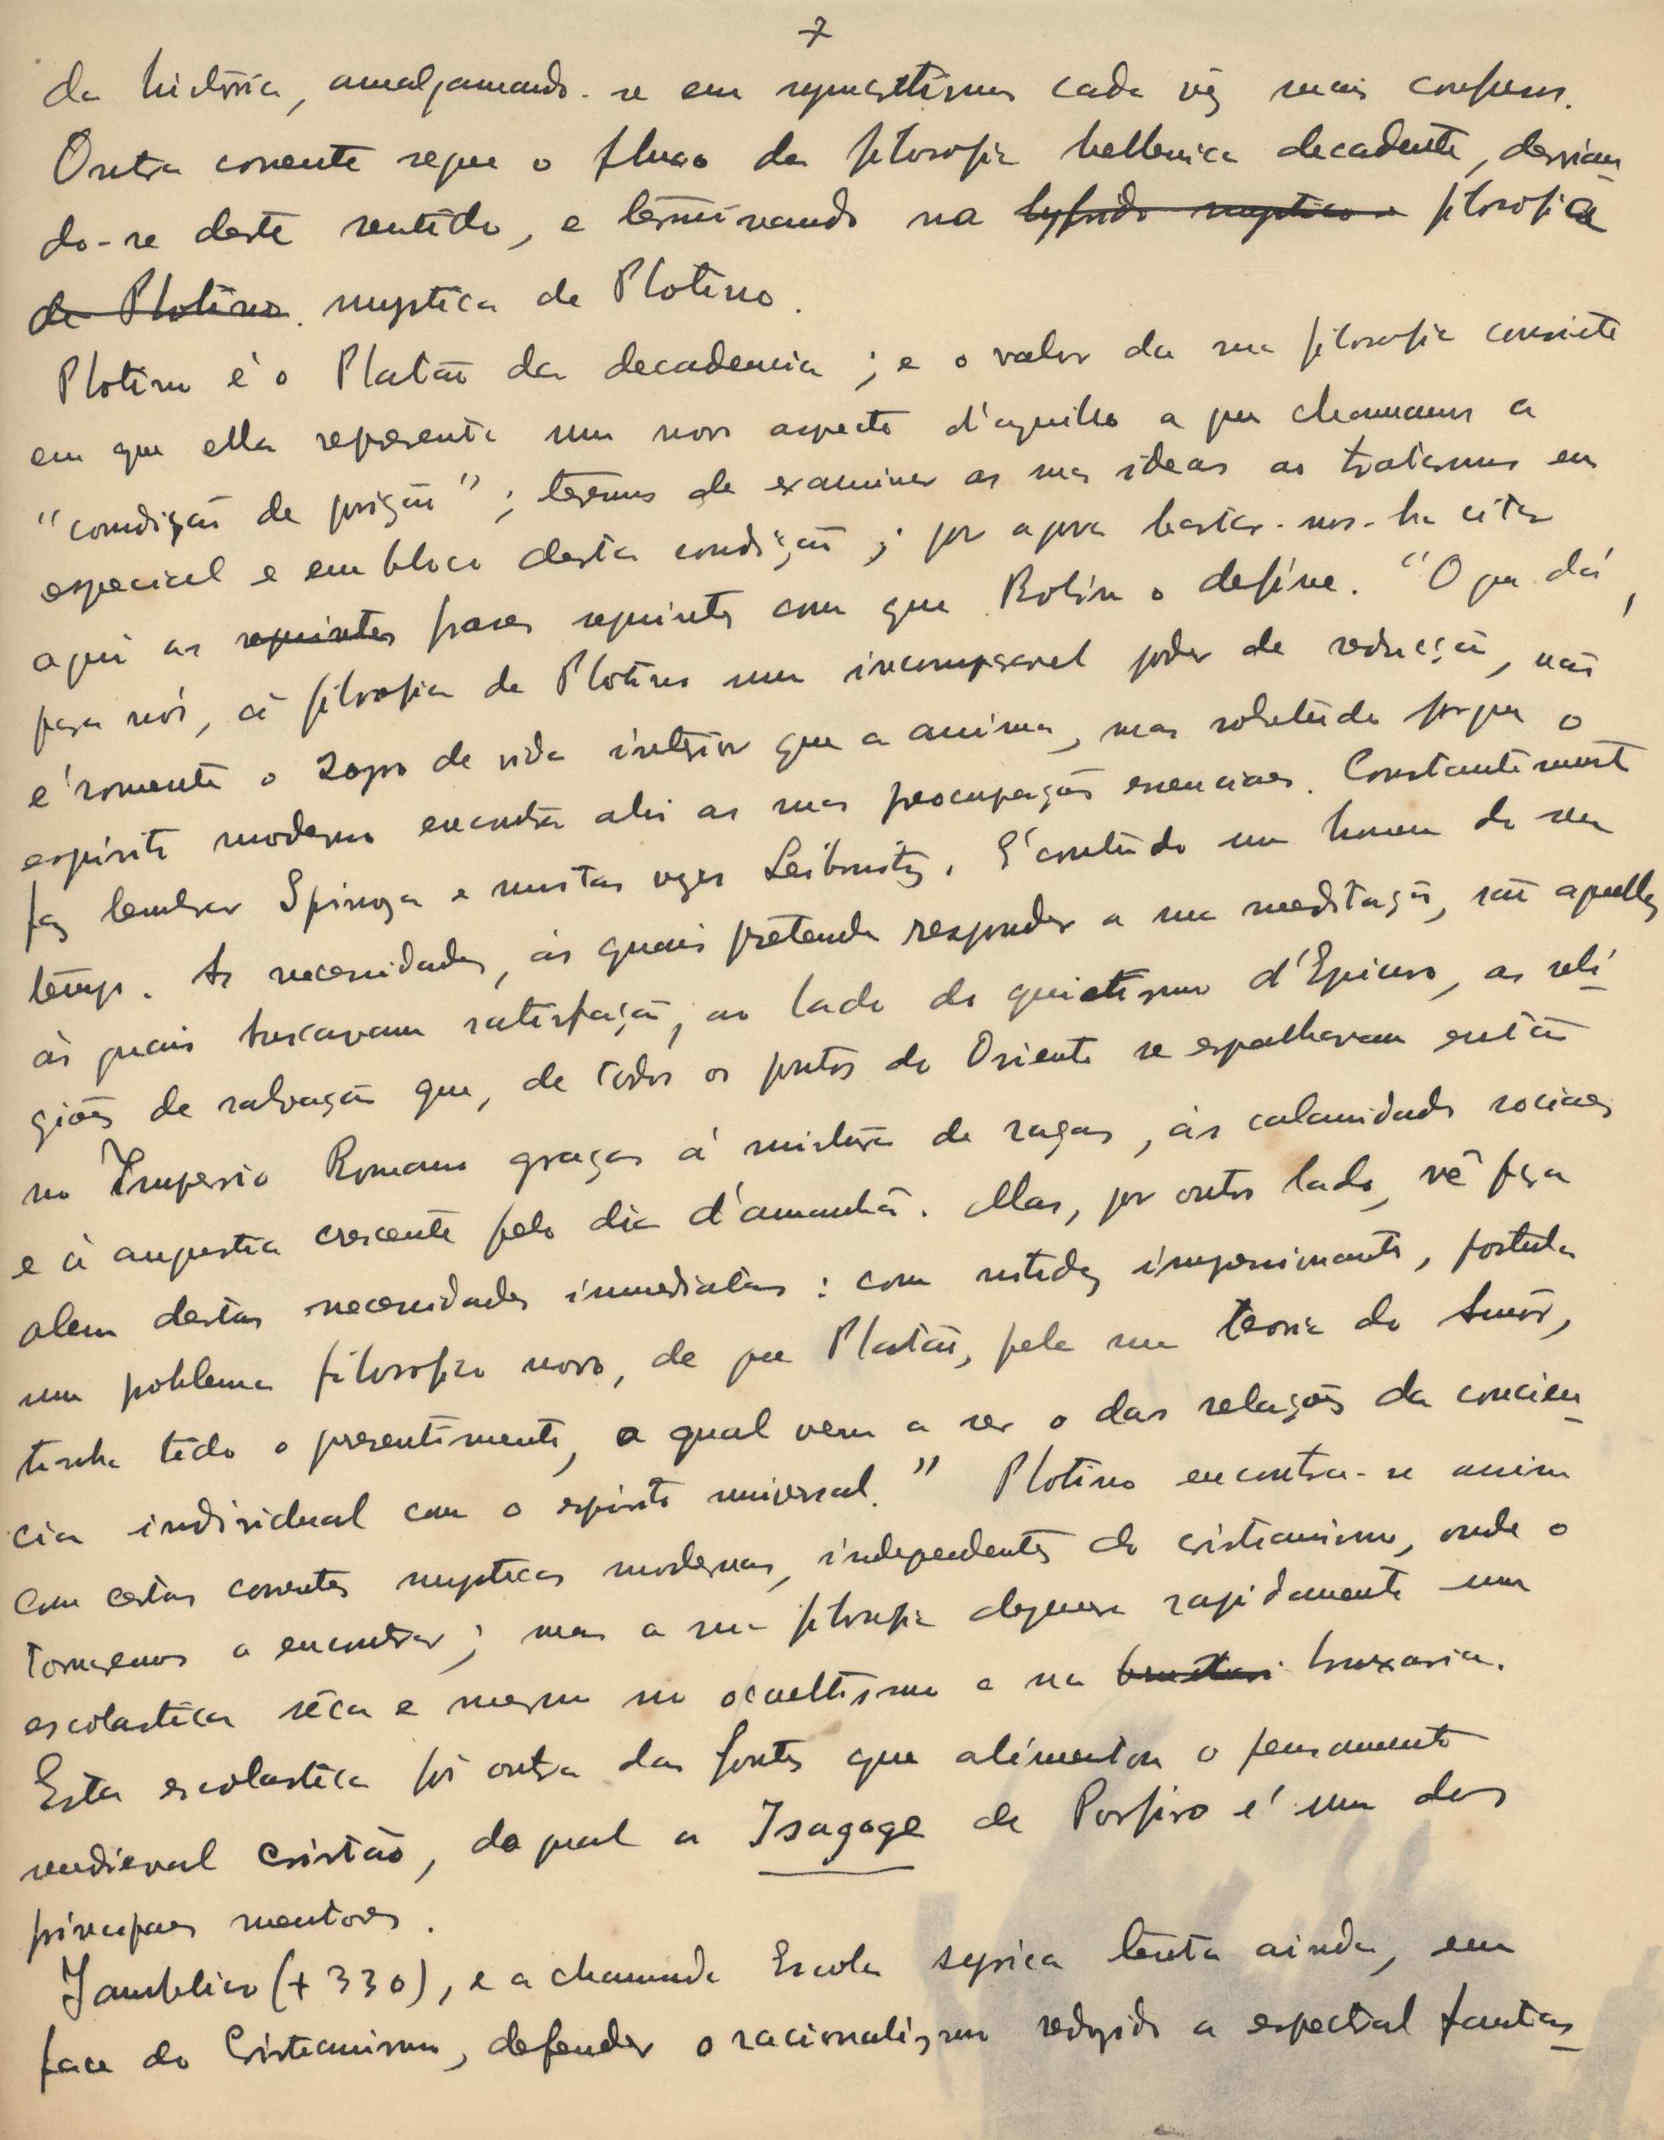 7
da história, amalgamando-se em syncretismos cada vez mais confusos.
Outra corrente segue o fluxo da filosofia hellenica decadente, desvian-
do-se deste sentido, e terminando na hybrido mystico e filosofia
de Plotino. mystica de Plotino.
Plotino é o Platão da decadencia; e o valor da sua filosofia consiste
em que ella representa um novo aspecto d'aquillo a que chamamos a
"condição de prizão"; teremos de examinar as suas ideas ao tratarmos em
especial e em bloco desta condição; por agora bastar-nos-ha citar
aqui as seguintes frases seguintes com que Robin o define. "O que dá,
para nós, á filosofia de Plotino um incomparavel poder de seducção, não
é somente o sopro de vida interior que a anima, mas sobretudo porque o
espirito moderno encontra ahi as suas preocupações essenciaes. Constantemente
faz lembrar Spinoza e muitas vezes Leibnitz. É contudo um homem do seu
tempo. As necessidades, ás quais pretende responder a sua meditação, são aquellas
ás quais buscavam satisfação, ao lado do quietismo d'Epicuro, as reli-
giões de salvação que, de todos os pontos do Oriente se espalhavam então
no Imperio Romano graças á mistura de raças, ás calamidades sociaes
e á angustia crescente pelo dia d'amanhã. Mas, por outro lado, vê para
alem destas necessidades immediatas: com nitidez impressionante, postula
um poblema filosofico novo, de que Platão, pela sua teoria do Amôr,
tinha tido o presentimento, o qual vem a ser o das relações da concien-
cia individual com o espirito universal." Plotino encontra-se assim
com certas correntes mysticas modernas, independentes do cristianismo, onde o
tornaremos a encontrar; mas a sua filosofia degenera rapidamente numa
escolastica sêca e mesmo no ocultismo e na bruxaria.
Esta escolastica foi outra das fontes que alimentou o pensamento
medieval cristão, do qual a Isagoge de Porfiro é um dos
principaes mentores.
Jamblico (+ 330), e a chamada Escola syrica tenta ainda, em
face do Cristianismo, defender o racionalismo reduzido a espectral fantas-